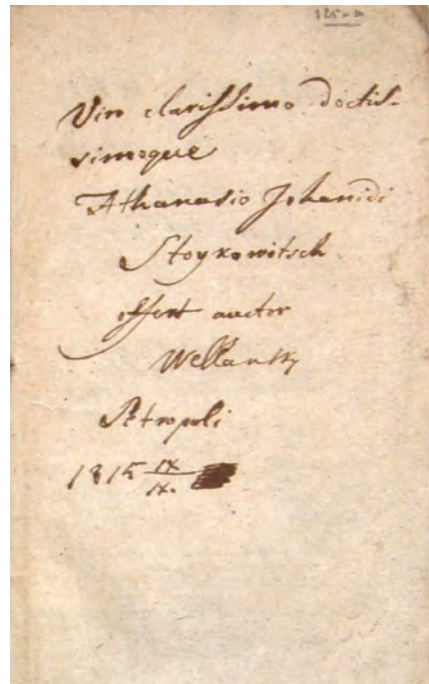 Viro clarissimo doctis-
simoque
Athanasio Johanidi
Stoykowitsch
offert auctor
Wellansky
Petropoli
1815 IX/IX.